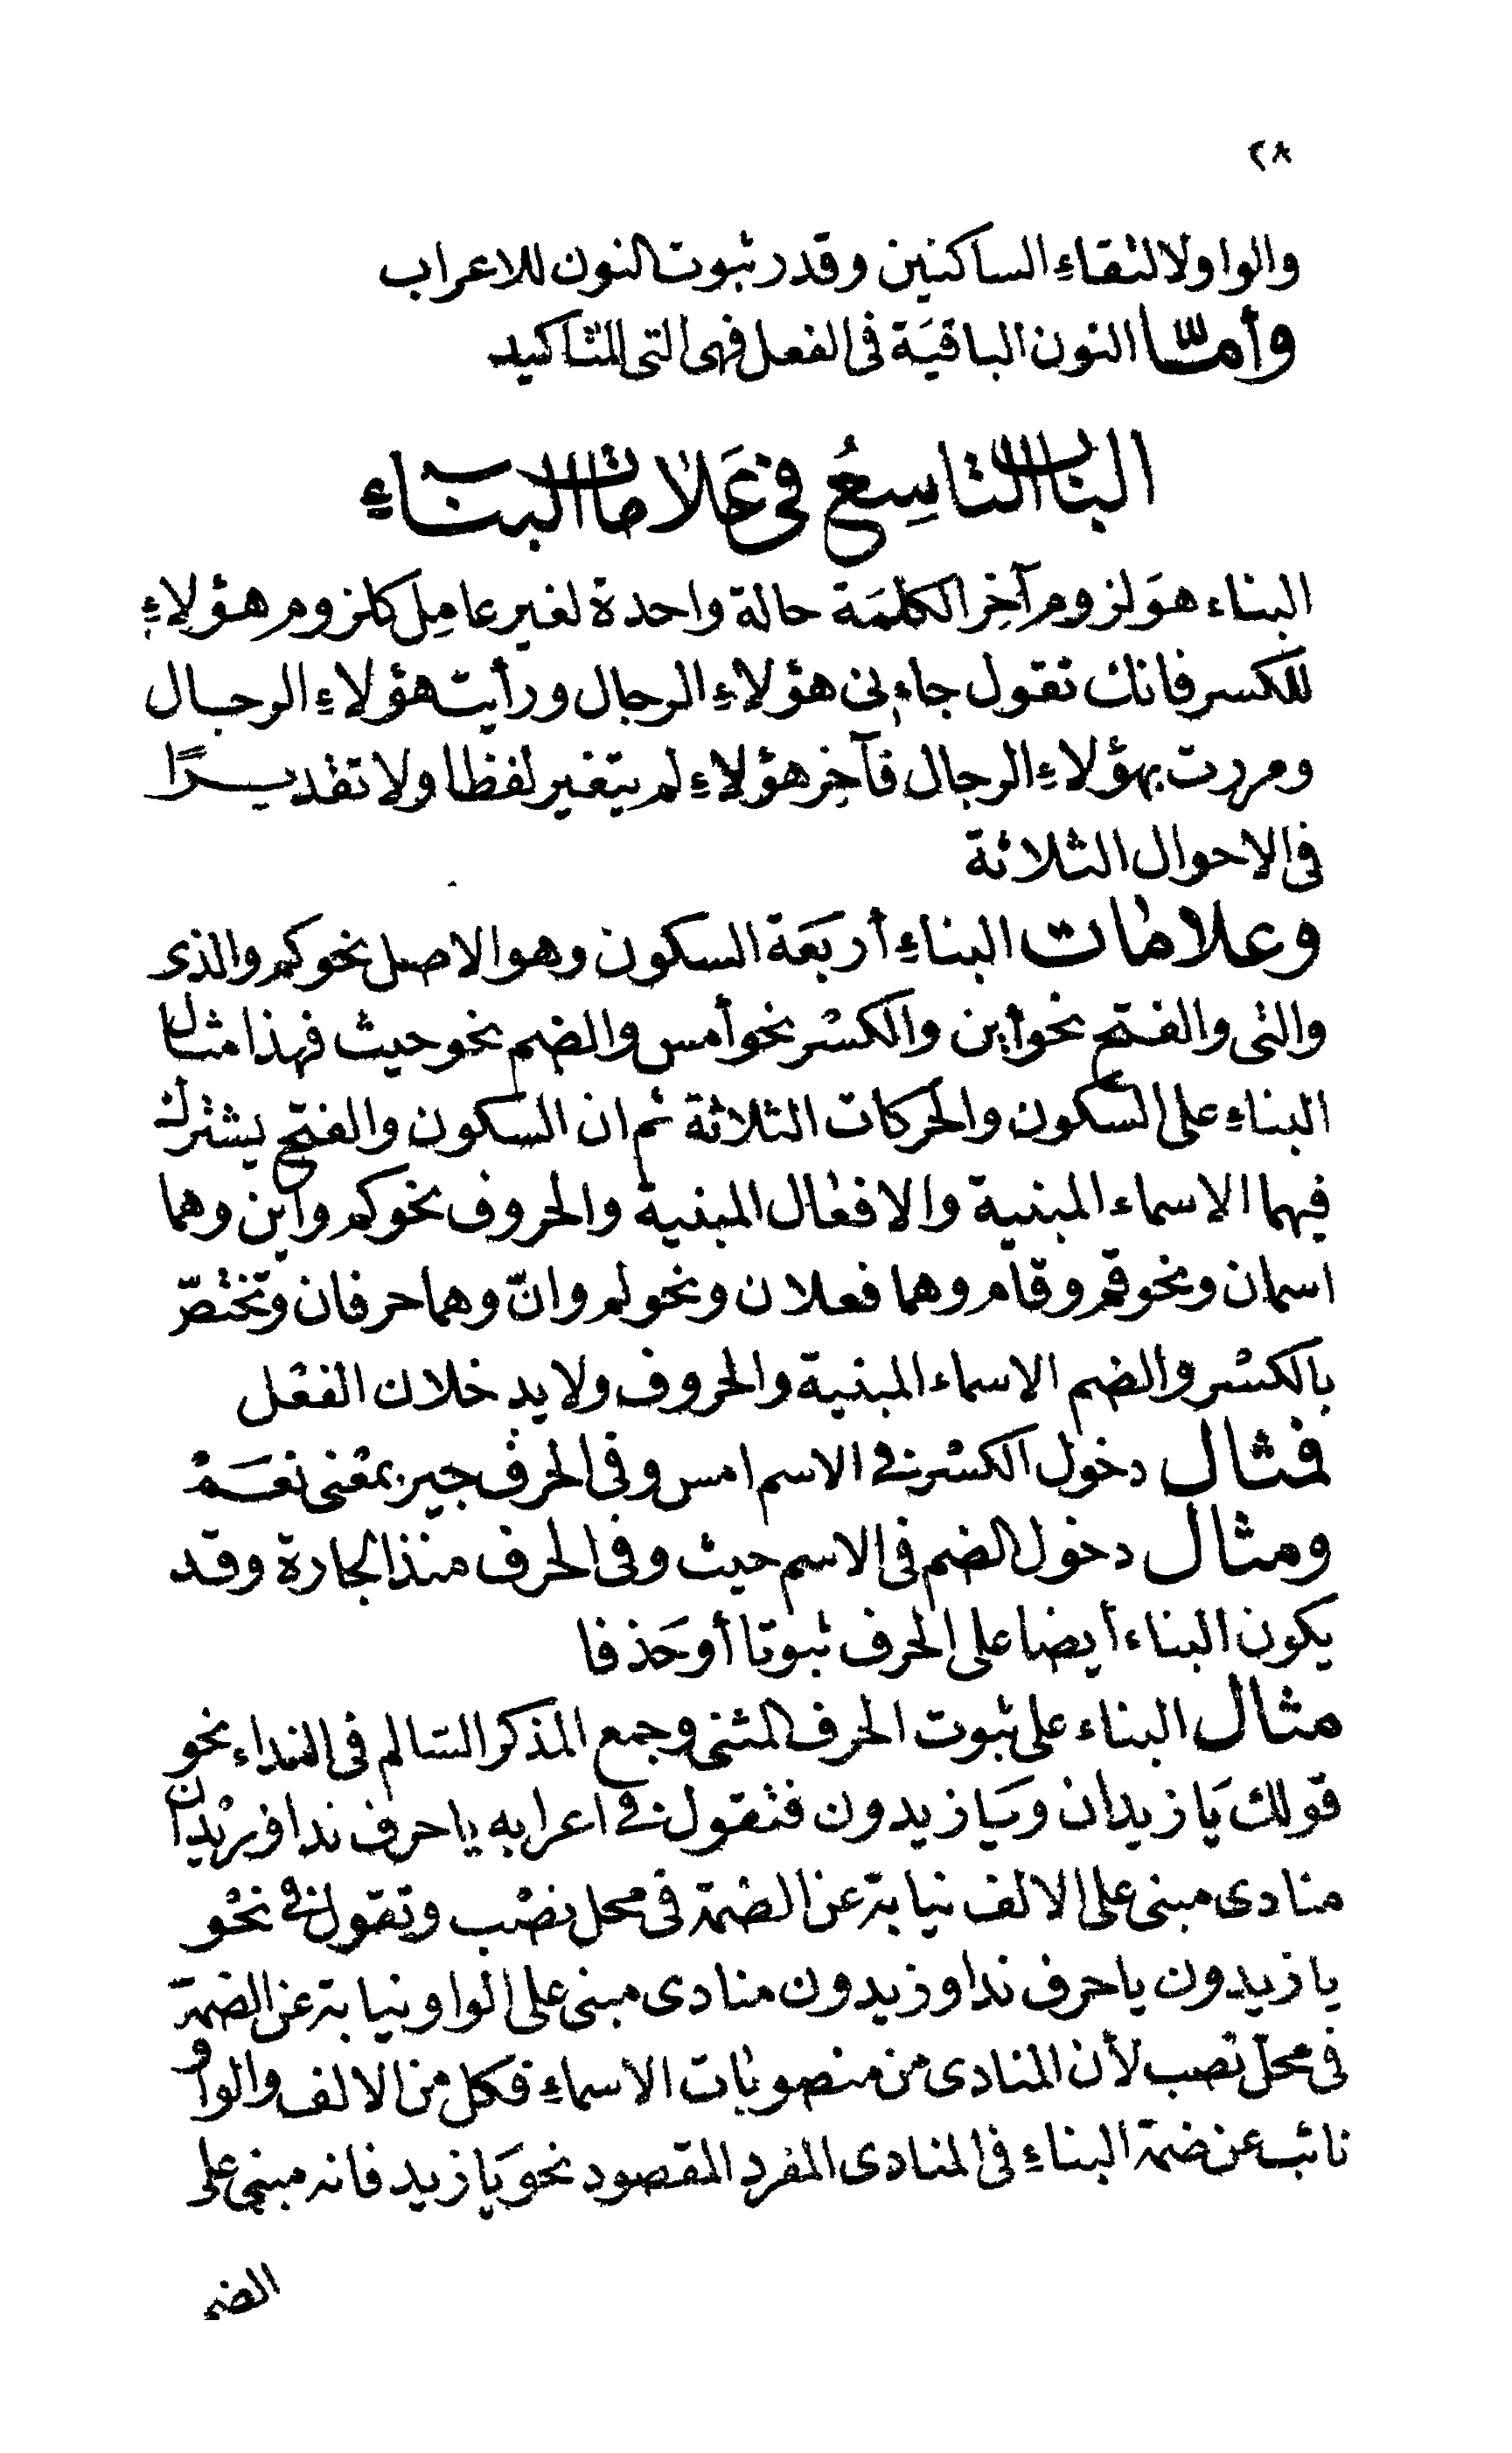 ٢٨
والواو لالتقاء الساكنين وقدر ثبوت النون للاعراب
وأمّا النون الباقيَة فى الفعل فهى التى للتاكيد
الباب التاسِعُ فى عَلامات البناءِ
البناء هوَ لزوم آخِر الكلمَة حالة واحدة لغير عامِل كلزوم هؤلاءِ
للكسر فانك تقول جاءنى هؤلاءِ الرجال ورأيت هؤلاءِ الرجال
ومررت بهؤلاءِ الرجال فآخِر هؤلاءِ لم يتغير لفظا ولا تقديرًا
فى الاحوال الثلاثة
وعلامات البناءِ أربعَة السكون وهو الاصل نحو كم والذى
والتى والفتح نحو أين والكسْر نحو أمس والضم نحو حيث فهذا مثال
البناءِ على السّكون والحركات الثلاثة ثم ان السكون والفتح يشترك
فيهما الاسماء المبنية والافعال المبنية والحروف نحو كم واين وهما
اسمان ونحو قم وقام وهما فعلان ونحو لم وانّ وهما حرفان وتختصّ
بالكسْر والضم الاسماء المبنية والحروف ولا يدخلان الفعْل
فمثال دخول الكسْر فى الاسم امس وفى الحرف جير بمعْنى نعَمْ
ومثال دخول الضم فى الاسم حيث وفى الحرف منذ الجارة وقد
يكون البناء أيضا على الحرف ثبوتا أو حَذفا
مثال البناء على ثبوت الحرف المثنى وجمع المذكر السّالم فى النداء نحو
قولك يَا زيدان ويَا زيدون فتقول فى اعرابه يا حرف ندا وزيْدان
منادى مبنى على الالف نيابة عن الضمّة فى محل نصْب وتقول فى نحْو
يا زيدون يا حرف ندا وزيدون منادى مبنى على الواو نيابة عن الضمة
فى محلّ نصب لأن المنادى من منصوبات الاسماءِ فكل من الالف والواو
نائب عن ضمّة البناءِ فى المنادى المفرد المقصود نحو يَا زيد فانه مبنى على
الضم